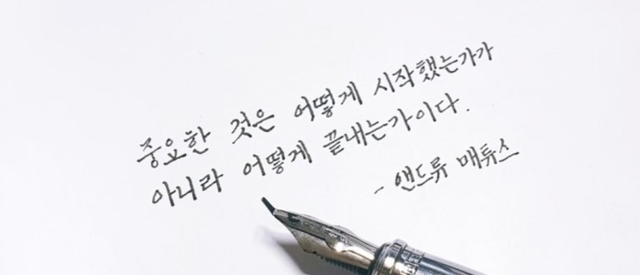 중요한 것은 어떻게 시작했는가가
아니라 어떻게 끝내는가이다.
- 앤드류 매튜스